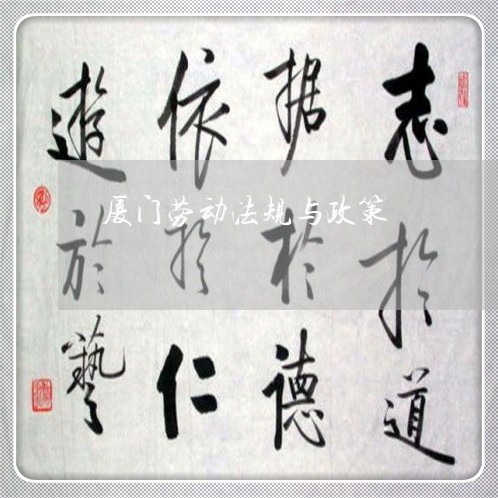 志於道
据於德
依於仁
遊於藝
厦门劳动法规与政策